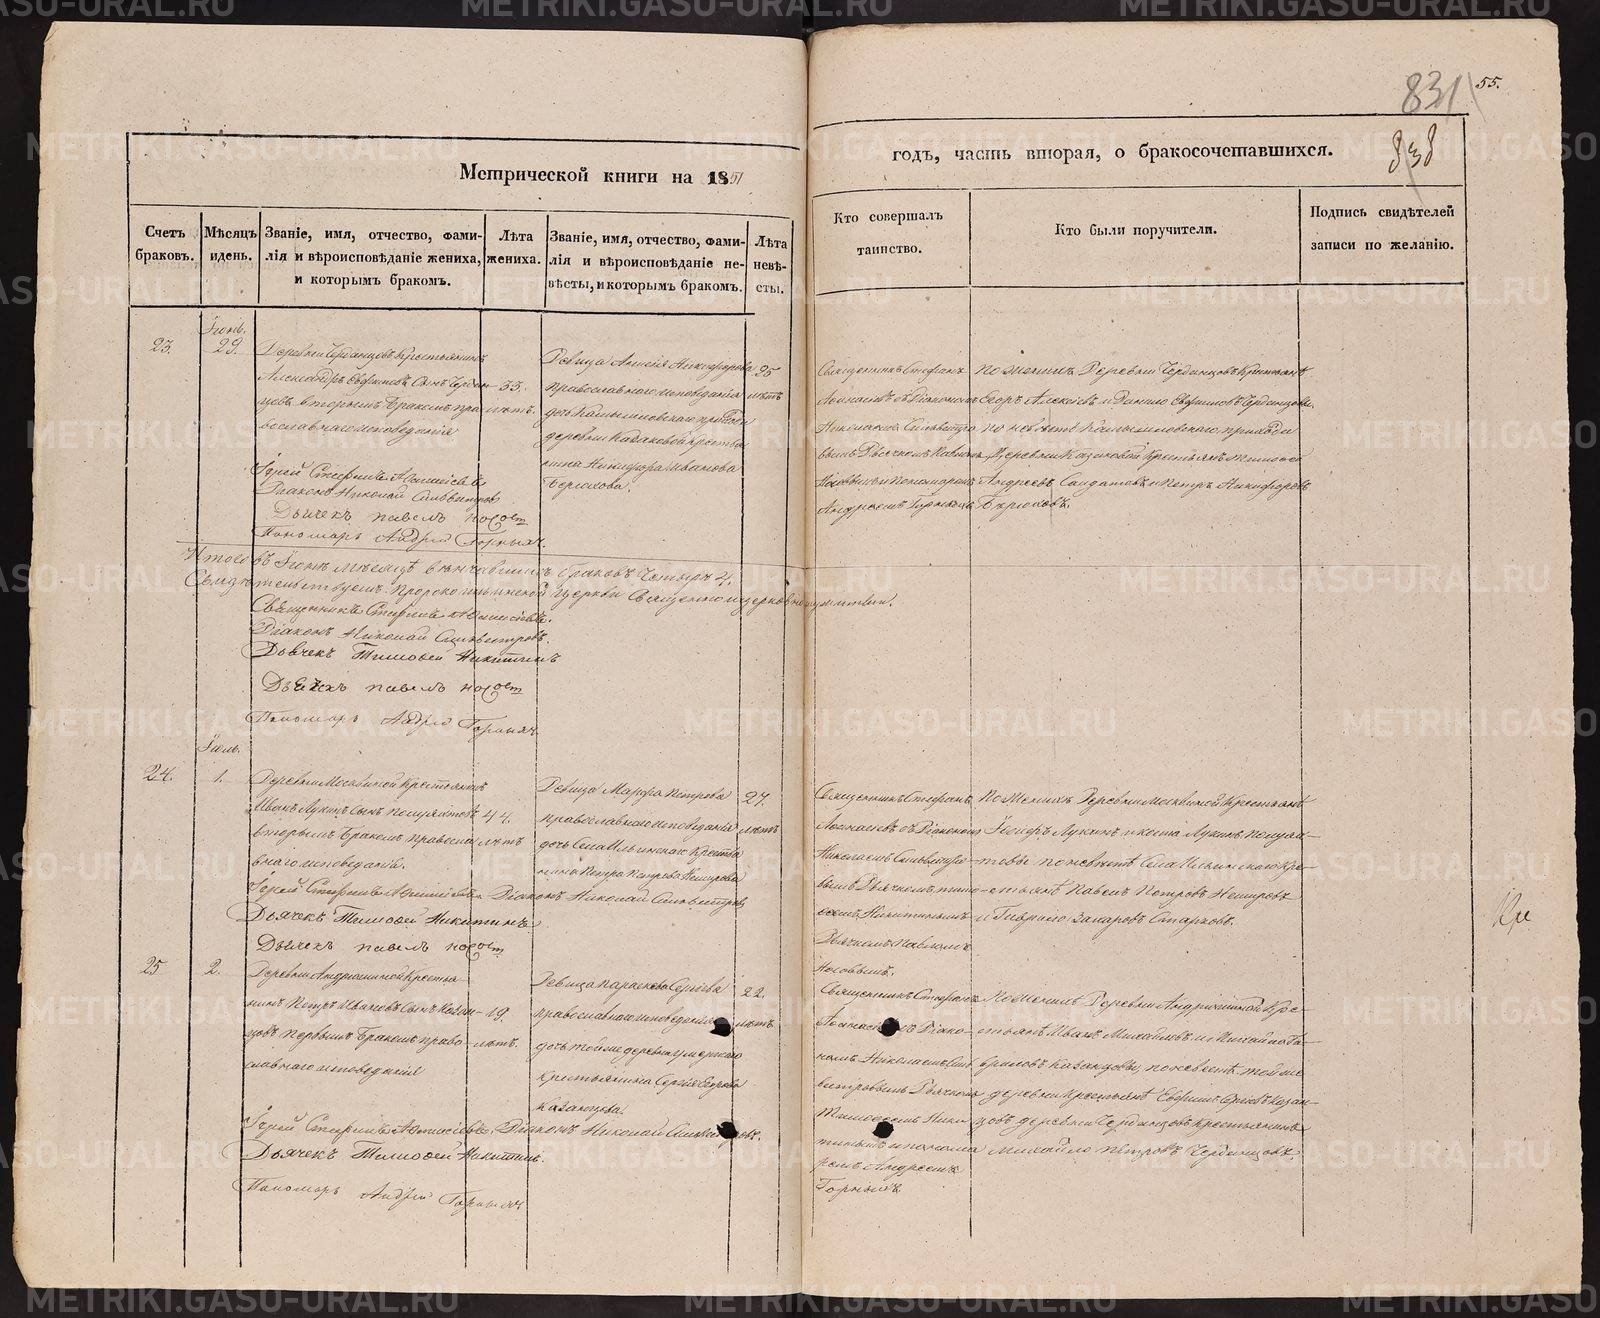 831
55.
838
Метрической книги на 1851
годъ, часть вторая, о бракосочетавшихся.
Счетъ браковъ.
Мѣсяцъ и день.
Званіе, имя, отчество, фами-
лія и вѣроисповѣданіе жениха,
и которымъ бракомъ.
Лѣта
жениха.
Званіе, имя, отчество, фами-
лія и вѣроисповѣданіе не-
вѣсты, и которымъ бракомъ.
Лѣта
невѣ-
сты.
Кто совершалъ
таинство.
Кто были поручители.
Подпись свидѣтелей
записи по желанію.
23.
29.
Деревни Черданцовъ Крестьянинъ
Александръ Евфимовъ Сынъ Чердан-
цовъ вторымъ бракомъ пра-
вославнаго исповеданія
33.
лѣтъ.
Девица Анисія Никифорова
православнаго исповеданія
дочь Камышловскаго
деревни Казаковой крестья
нина Никифора Иванова
Бирюкова.
25
лѣтъ
Священникъ Стефанъ
Афанасьевъ съ Діакономъ
Николаемъ Сильвестро
вымъ Дьячкомъ Павломъ
Носовымъ и Пономаремъ
Андреемъ Горныхъ
По женихе Деревни Черданцовъ Крестьяне
Егоръ Алексѣевъ и Данило Евфимовъ Черданцовы.
по невѣсте Камышловскаго прихода
Деревни Казаковой Крестьяне Тимофей
Андреевъ Солдатовъ и Петръ Никифоровъ
Бирюковъ.
Іерей Стефанъ Афанасьевъ
Діаконъ Николай Сильвестровъ
Дьячекъ павелъ носовъ
Пономарь Андрей Горныхъ.
Итого въ Іюнѣ мѣсяцѣ венчавшихъ браковъ Четыре 4.
Свидѣтельствуемъ Пророкоильинской Церкви Священно и церковнослужители.
Священникъ Стефанъ Афанасьевъ.
Діаконъ Николай Сильвестровъ.
Дьячекъ Тимофей Никитинъ
Дьячекъ павелъ носовъ
Пономарь Андрей Горныхъ
Іюль.
24.
1.
Деревни Москвиной Крестьянинъ
Иванъ Лукинъ Сынъ Полуяхтовъ
вторымъ бракомъ правосла
внаго исповеданія.
44.
лѣтъ
Девица Марфа Петрова
православнаго исповеданія
дочь Села Ильинскаго Крестья
нина Петра Петрова Немирова
27.
лѣтъ
Священникъ Стефанъ
Афанасьевъ съ Діакономъ
Николаемъ Сильвестро-
вымъ Дьячкомъ Тимо-
феемъ Никитинымъ
Дьячкомъ Павломъ
Носовымъ.
По Женихе Деревни Москвиной Крестьяне
Лукинъ и Коста Лукинъ Полуях-
товы по невѣсте Села Ильинскаго Кре-
стьяне Павелъ Петровъ Немировъ
и Гаврило Захаровъ Старковъ.
Іерей Стефанъ Афанасьевъ. Діаконъ Николай Сильвестровъ
Дьячекъ Тимофей Никитинъ
Дьячекъ павелъ носовъ
25
2.
Деревни Андрюшиной Крестья-
нинъ Петръ Ивановъ Сынъ Казан-
цовъ первымъ бракомъ право-
славнаго исповеданія
19.
лѣтъ.
Девица Парасковья Сергѣева
православнаго исповеданія
дочь тойже деревни умершаго
Крестьянина Сергѣя Егорова
Казанцова.
22.
лѣтъ
Священникъ Стефанъ
Афанасьевъ съ Діако-
номъ Николаемъ Силь
вестровымъ Дьячкомъ
Тимофеемъ Ники
тинымъ и понома
ремъ Андреемъ
Горныхъ
По женихе Деревни Андрюшиной Кре-
стьяне Иванъ Михайловъ и Михайло Га-
вриловъ Казанцовы, по невѣсте тойже
деревни Крестьяне Евфимъ Сергѣевъ Казан-
цовъ деревни Черданцовъ Крестьянинъ
Михайло Петровъ Черданцовъ.
Іерей Стефанъ Афанасьевъ. Діаконъ Николай Сильвестровъ.
Дьячекъ Тимофей Никитинъ.
Пономарь Андрей Горныхъ